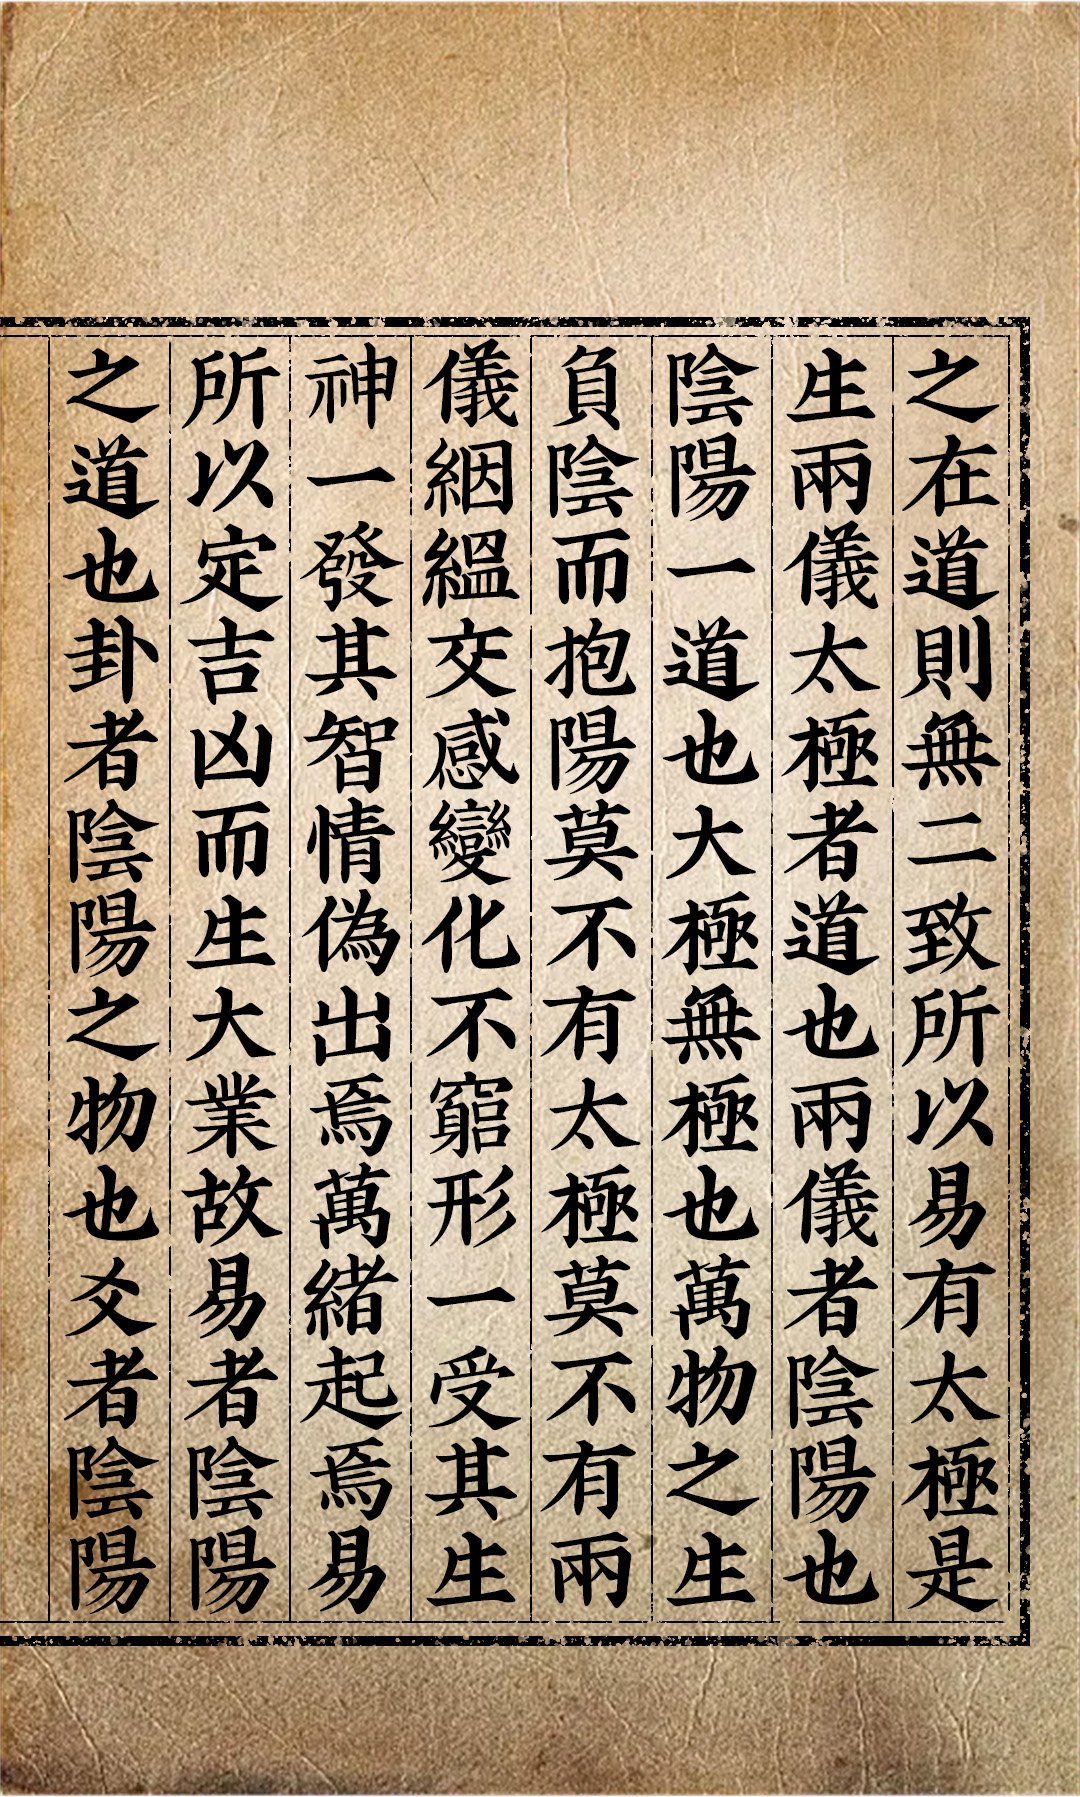 之在道則無二致所以易有太極是
生兩儀太極者道也兩儀者陰陽也
陰陽一道也大極無極也萬物之生
負陰而抱陽莫不有太極莫不有兩
儀絪縕交感變化不窮形一受其生
神一發其智情偽出焉萬緒起焉易
所以定吉凶而生大業故易者陰陽
之道也卦者陰陽之物也爻者陰陽